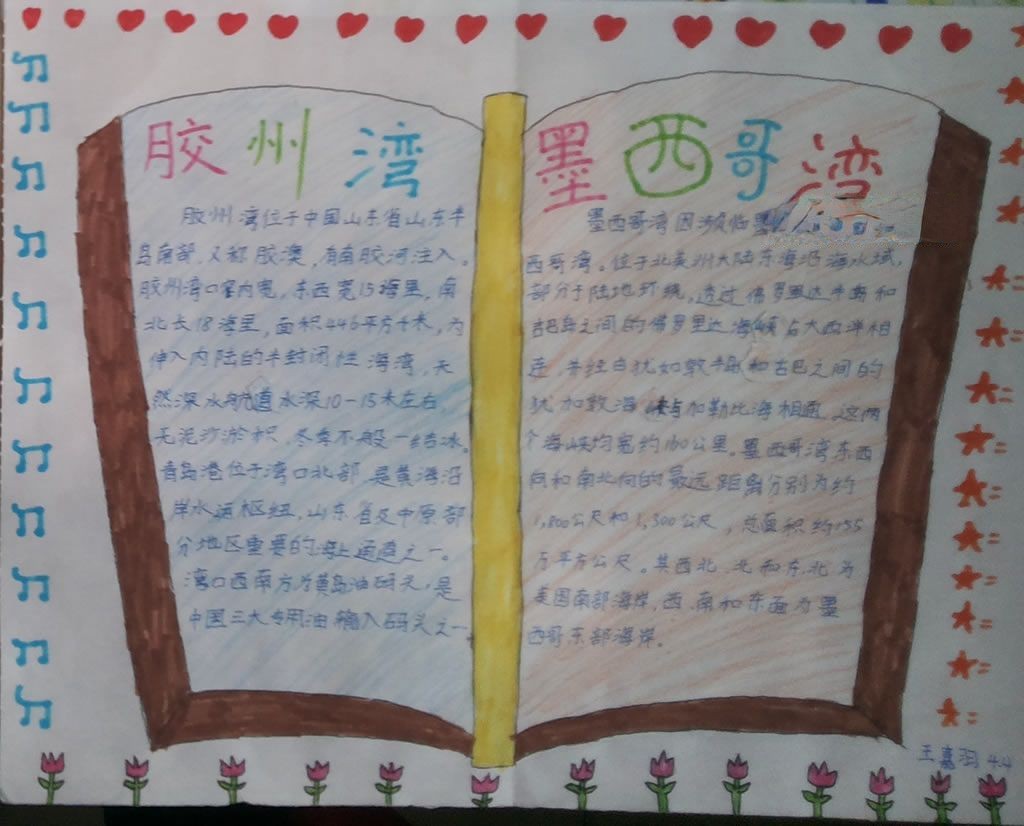 胶州湾
胶州湾位于中国山东省山东半
岛南部，又称胶澳，有南胶河注入。
胶州湾口窄内宽，东西宽15海里，南
北长18海里，面积446平方千米，为
伸入内陆的半封闭性海湾，天
然深水航道水深10-15米左右，
无泥沙淤积，冬季不般一结冰。
青岛港位于湾口北部，是黄海沿
岸水运枢纽，山东省及中原部
分地区重要的海上通道之一。
湾口西南方为黄岛油码头，是
中国三大专用油输入码头之一
墨西哥湾
墨西哥湾因濒临墨
西哥湾。位于北美州大陆东海沿海水域，
部分于陆地环绕。透过佛罗里达半岛和
古巴岛之间的佛罗里达海峡与大西洋相
连，并经由犹加敦半岛和古巴之间的
犹加敦海峡与加勒比海相通，这两
个海峡均宽约160公里。墨西哥湾东西
向和南北向的最远距离分别为约
1,800公尺和1,300公尺，总面积约155
万平方公尺。其西北、北和东北为
美国南部海岸，西、南和东面为墨
西哥东部海岸。
王嘉羽 4.4